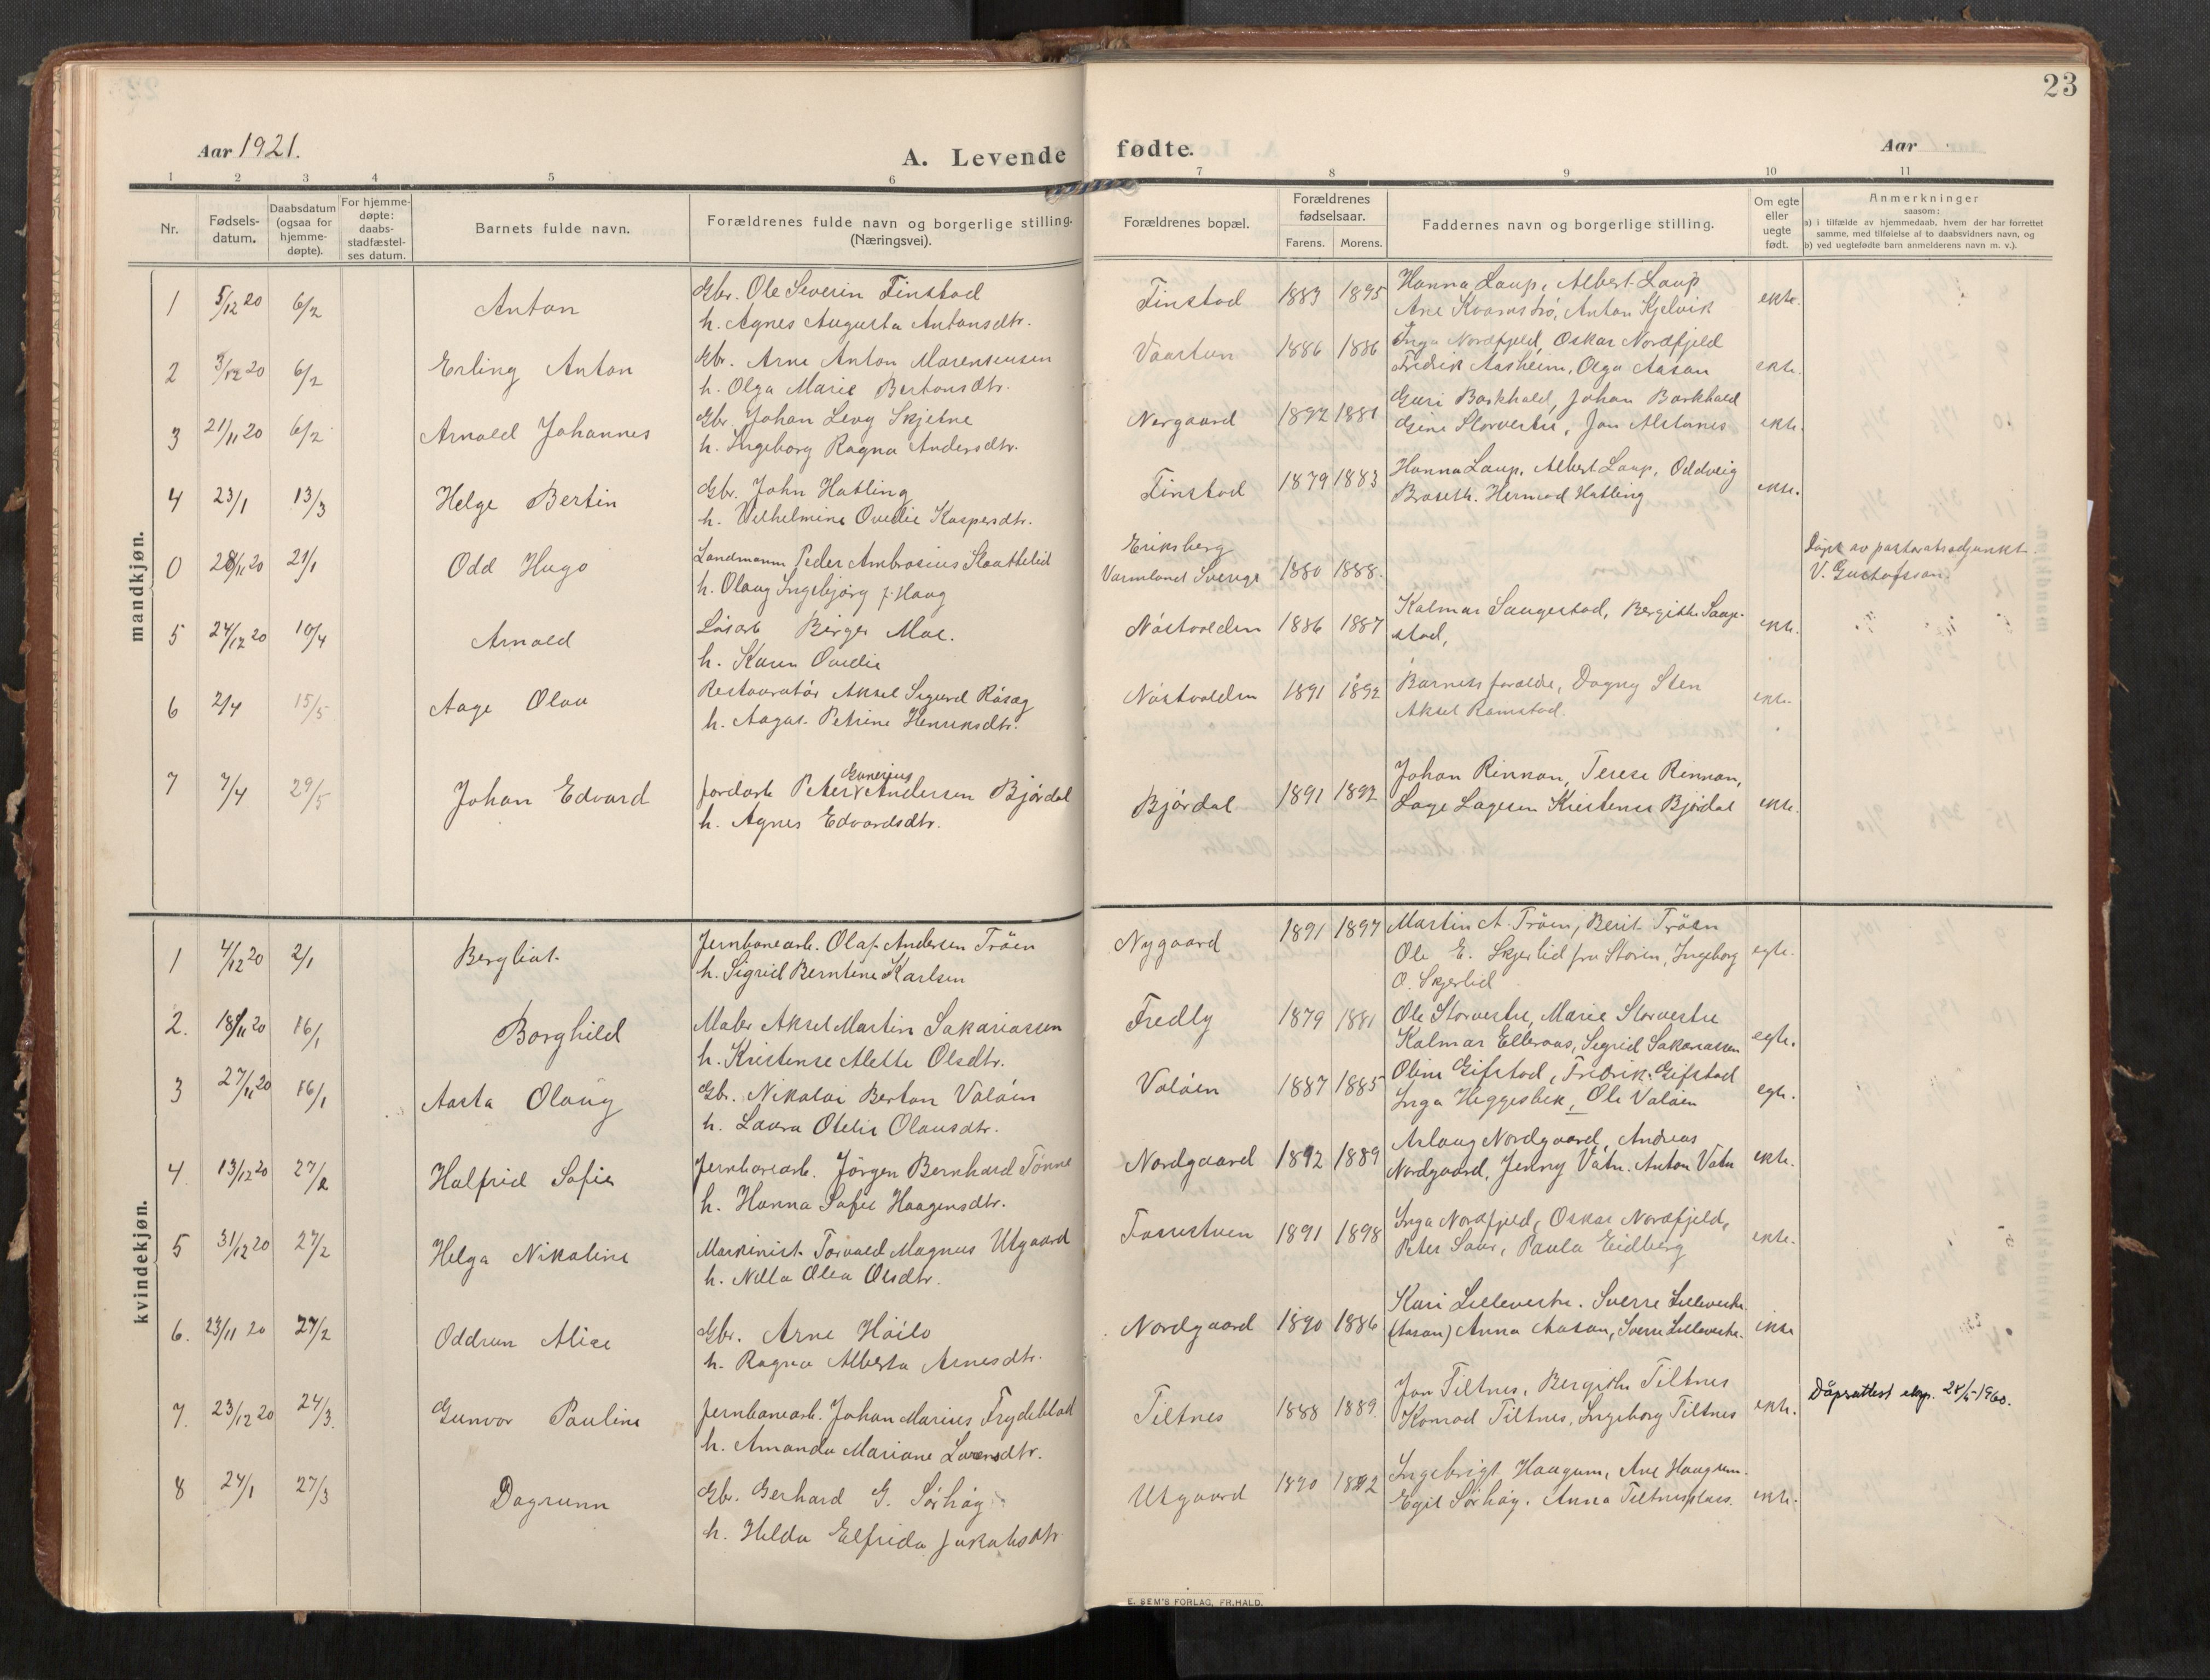 23
Aar 1921.
A. Levende fødte.
Aar
1 2 3 4 5 6 7 8 9 10 11
Nr.
Fødsels-
datum.
Daabsdatum
(ogsaa for
hjemme-
døpte).
For hjemme-
døpte:
daabs-
stadfæstel-
ses datum.
Barnets fulde navn.
Forældrenes fulde navn og borgerlige stilling.
(Næringsvei).
Forældrenes bopæl.
Forældrenes
fødselsaar.
Farens. Morens.
Faddernes navn og borgerlige stilling.
Om egte
eller
uegte
født.
Anmerkninger
saasom:
a) i tilfælde av hjemmedaab, hvem der har forrettet
samme, med tilføielse af to daabsvidners navn, og
b) ved uegtefødte barn anmelderens navn m. v.).
mandkjøn.
1 5/12 20 6/2 Anton Gbr. Ole Severin Finstad Finstad 1883 1895 Hanna Laup, Albert Laup ekte.
h. Agnes Augusta Antonsdtr. Anton Kjelvik
2 3/12 20 6/2 Erling Anton Gbr. Arne Anton Vaartun 1886 1886 Inga Nordfjeld, Oskar Nordfjeld ekte.
h. Olga Marie Bertonsdtr. Fredrik Aasheim, Olga Aasan
3 21/11 20 6/2 Arnold Johannes Gbr. Johan Levy Skjetne Nergaard 1892 1881 Guri Barkhald, Johan Barkhald ekte.
h. Ingeborg Ragna Andersdtr. Gine Storvestre, Jon
4 23/1 13/3 Helge Bertin Gbr. John Hatling Finstad 1879 1883 Hanna Laup, Albert Laup, Oddveig ekte.
h. Vilhelmine Ovedie Kaspersdtr. Braseth. Hermod Hatling
0 28/11 20 21/1 Odd Hugo Landmann Peder Ambrosius Eriksberg
Varmland Sverige 1880 1888. Døpt av pastoratsadjunkt
h. Olaug Ingebjørg f. Haug V. Gustafsson.
5 24/12 20 10/4 Arnold Løsarb Birger Moe. Nøstvolden 1886 1887 Kalmar Saugestad, Bergithe Sauge- ekte.
h. Karen Ovedie stad,
6 2/4 15/5 Aage Olau Restauratør Aksel Sigurd Røsæg Nøstvolden 1891 1892 Barnets forældre, Dagny Sten ekte.
h. Aagot Petrine Henriksdtr. Aksel Ramstad.
7 7/4 29/5 Johan Edvard Jordarb Peter Gunerius Andersen Bjørdal Bjørdal 1891 1892 Johan Rinnan, Terese Rinnan, ekte.
h. Agnes Edvardsdtr. Lage Lagesen Kristense Bjørdal
kvindekjøn.
1 4/12 20 2/1 Bergliot Jernbanearb. Olaf Andersen Trøen Nygaard 1891 1897 Martin A. Trøen, Berit Trøen egte.
h. Sigrid Berntine Karlsen Ole E. Skjerlid fra Støren, Ingeborg
O. Skjerlid
2. 18/11 20 16/1 Borghild Maler Aksel Martin Sakariassen Fredly 1879 1881 Ole Storvestre, Marie Storvestre egte.
h. Kristense Alette Olsdtr. Kalmar Elleraas, Sigrid Sakariassen
3 27/11 20 16/1 Aasta Olaug Gbr. Nikolai Berton Valøen Valøen 1887 1885 Oline Gifstad, Fredrik Gifstad egte.
h. Laura Otelie Olausdtr. Inga Heggesbek, Ole Valøen
4 13/12 20 27/2 Halfrid Sofie Jernbanearb. Jørgen Bernhard Tønne Nordgaard 1892 1889 Aslaug Nordgaard, Andreas ekte.
h. Hanna Sofie Haagensdtr. Nordgaard, Jenny Vatn. Anton Vatn
5 31/12 20 27/2 Helga Nikoline Maskinist Torvald Magnus Utgaard 1891 1898 Inga Nordfjeld, Oskar Nordfjeld, ekte.
h. Nella Olea Olsdtr. Peter Saur, Paula Eidberg
6. 23/11 20 27/2 Oddrun Alise Gbr. Arne Høilo Nordgaard 1890 1886 Kari Lillevestre. Sverre Lillevestre ekte
h. Ragna Alberta Arnesdtr. (Aasan) Anna Aasan, Sverre Lillevestre.
7. 23/12 20 24/3. Gunvor Pauline Jernbanearb. Johan Marius Frydeblad Tiltnes 1888 1889. Jon Tiltnes, Bergithe Tiltnes ekte. Dåpsattest eksp. 24/5-1960.
h. Amanda Mariane Lorensdtr. Konrad Tiltnes, Ingeborg Tiltnes
8 24/1 27/3 Dagrunn Gbr. Gerhard G. Sørhøg Utgaard 1890 1892 Ingebrigt Haugum, Ane Haugum. ekte.
h. Hilda Elfrida Jakobsdtr Egil Sørhøg. Anna Tiltnesplass.
E. SEM'S FORLAG, FR.HALD.